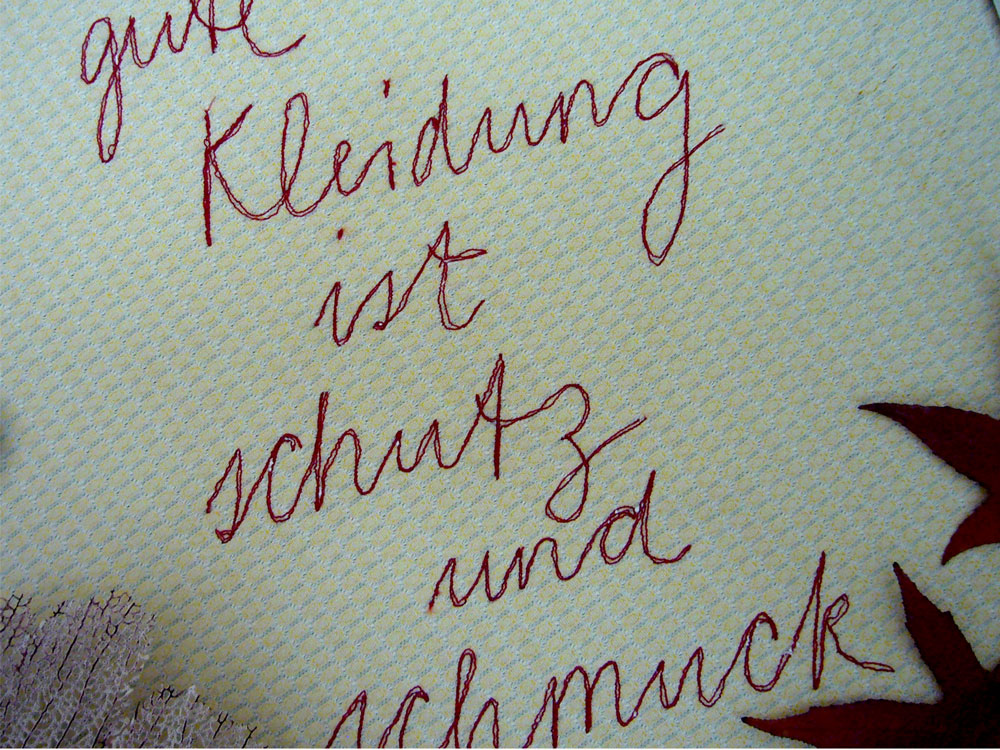 gute
Kleidung
ist
schutz
und
schmuck